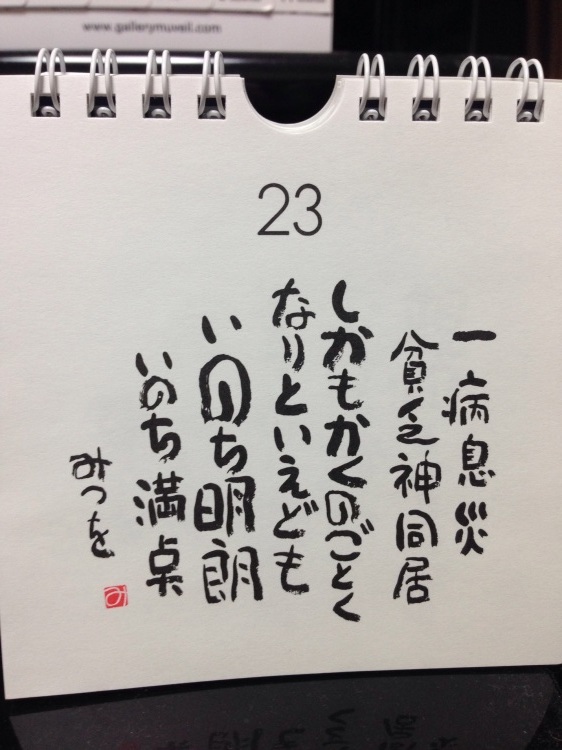 www.gallerymuveil.com
23
一病息災
貧乏神同居
しかもかくのごとく
なりといえども
いのち明朗
いのち満点
みつを
み